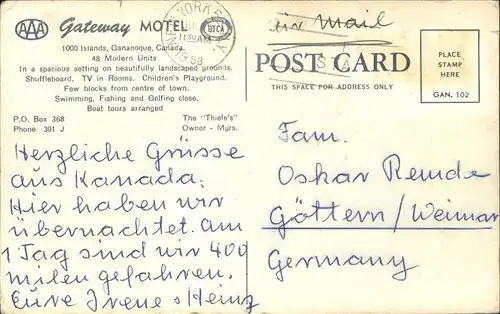 AAA Gateway MOTEL
1000 Islands, Gananoque, Canada.
48 Modern Units
In a spacious setting on beautifully landscaped grounds.
Shuffleboard. TV in Rooms. Children's Playground.
Few blocks from centre of town.
Swimming, Fishing and Golfing close.
Boat tours arranged
P.O. Box 368
Phone 301 J
The "Thiele's"
Owner - Mgrs.
Herzliche Grüsse
aus Kanada.
Hier haben wir
übernachtet. Am
1 Tag sind wir 400
milen gefahren.
Eure Irene + Heinz
Air Mail
POST CARD
THIS SPACE FOR ADDRESS ONLY
PLACE
STAMP
HERE
GAN. 102
Fam.
Oskar Remde
Göttern/Weimar
Germany